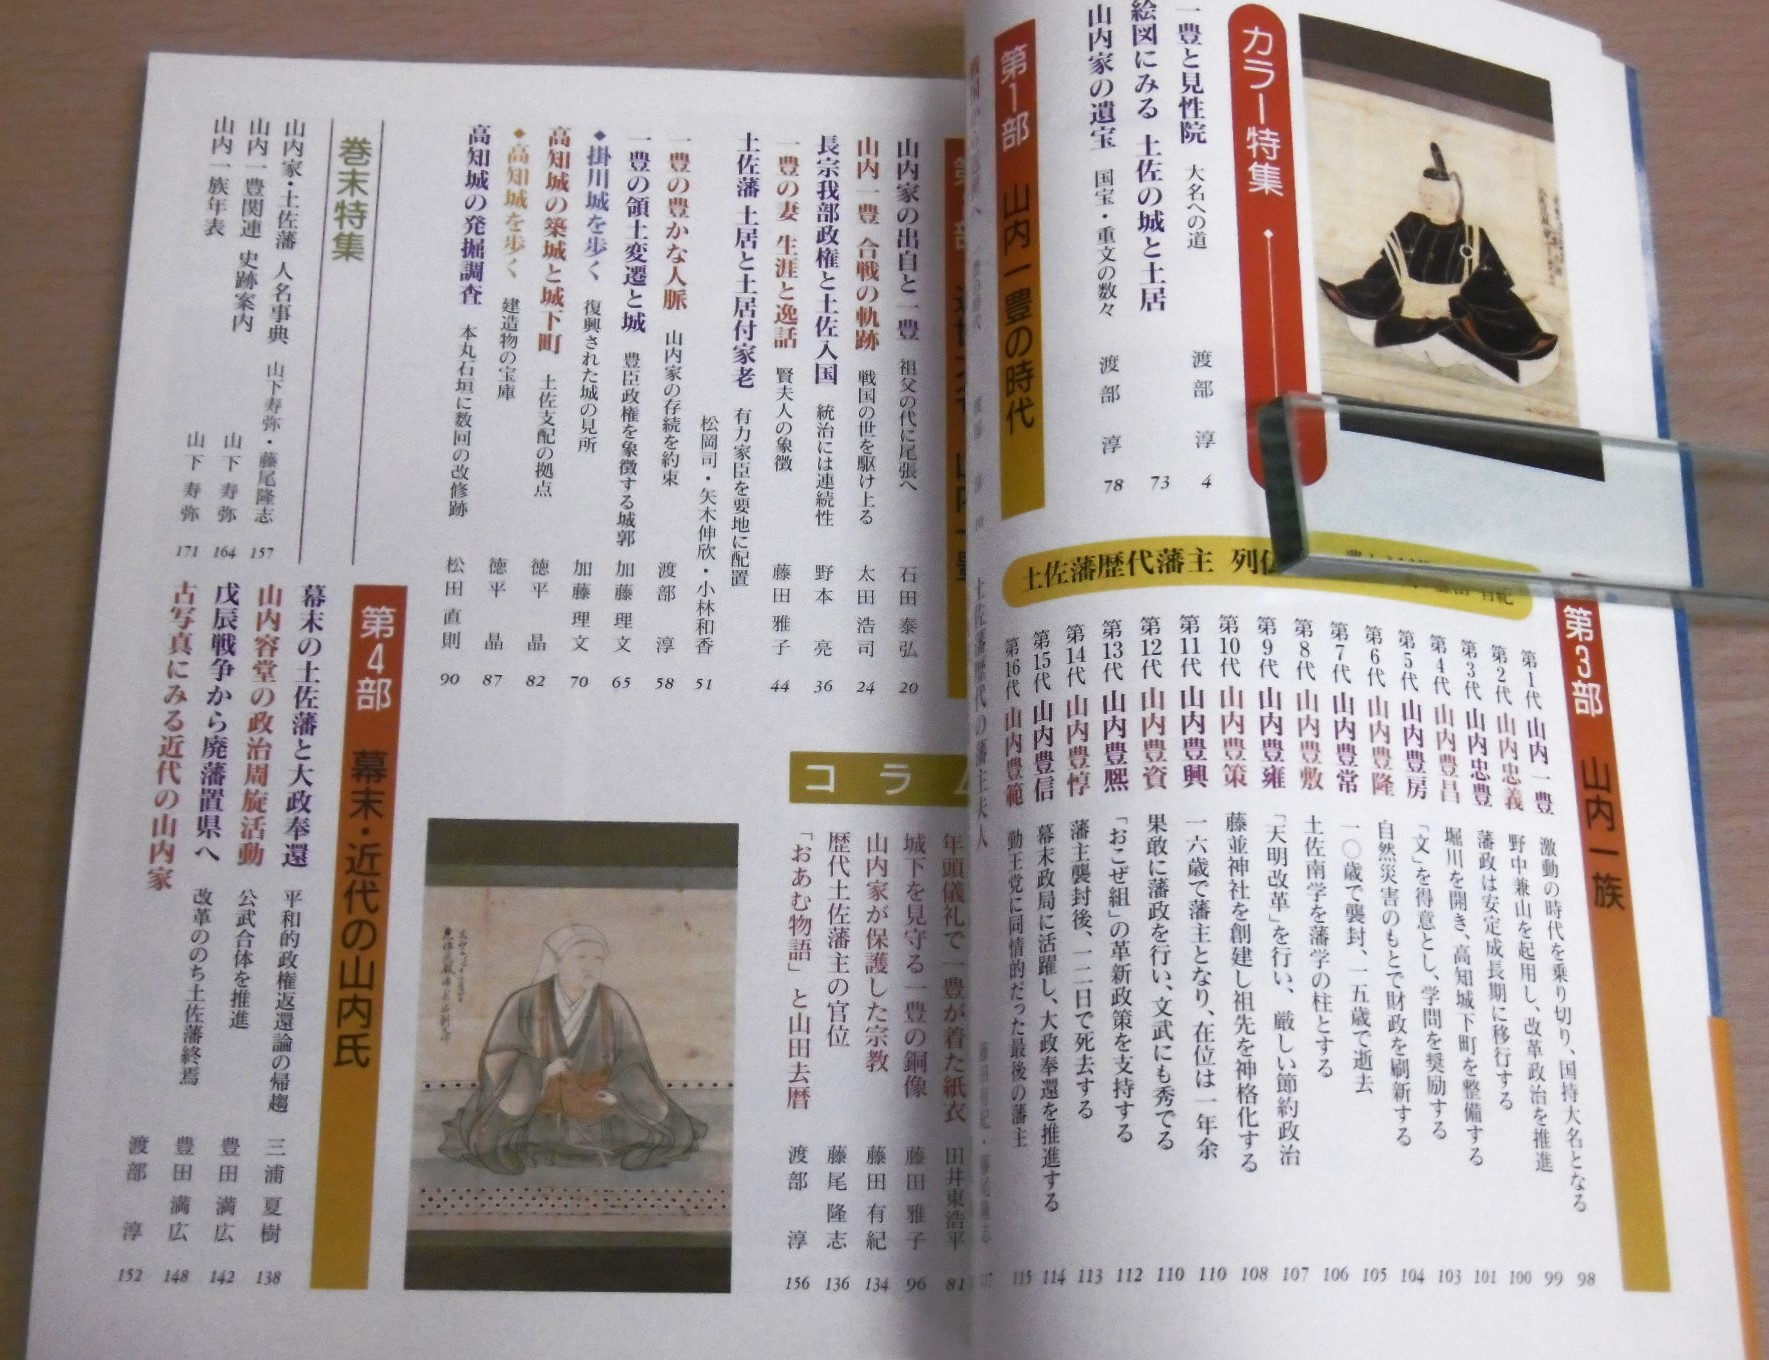 カラー特集
一豊と見性院 大名への道 渡部 淳 4
絵図にみる 土佐の城と土居 73
山内家の遺宝 国宝・重文の数々 渡部 淳 78
第1部 山内一豊の時代
第3部 山内一族
土佐藩歴代藩主
第1代 山内一豊 激動の時代を乗り切り、国持大名となる 98
第2代 山内忠義 野中兼山を起用し、改革政治を推進 99
第3代 山内忠豊 藩政は安定成長期に移行する 100
第4代 山内豊昌 堀川を開き、高知城下町を整備する 101
第5代 山内豊房 「文」を得意とし、学問を奨励する 103
第6代 山内豊隆 自然災害のもとで財政を刷新する 104
第7代 山内豊常 一〇歳で襲封、一五歳で逝去 105
第8代 山内豊敷 土佐南学を藩学の柱とする 106
第9代 山内豊雍 「天明改革」を行い、厳しい節約政治 107
第10代 山内豊策 藤並神社を創建し祖先を神格化する 108
第11代 山内豊興 一六歳で藩主となり、在位は一年余 110
第12代 山内豊資 果敢に藩政を行い、文武にも秀でる 110
第13代 山内豊熈 「おこぜ組」の革新政策を支持する 112
第14代 山内豊惇 藩主襲封後、一二日で死去する 113
第15代 山内豊信 幕末政局に活躍し、大政奉還を推進する 114
第16代 山内豊範 勤王党に同情的だった最後の藩主 115
土佐藩歴代の藩主夫人
山内家の出自と一豊 祖父の代に尾張へ 石田泰弘 20
山内一豊 合戦の軌跡 戦国の世を駆け上る 太田浩司 24
長宗我部政権と土佐入国 統治には連続性 野本 亮 36
一豊の妻 生涯と逸話 賢夫人の象徴 藤田雅子 44
土佐藩 土居と土居付家老 有力家臣を要地に配置
松岡司・矢木伸欣・小林和香 51
一豊の豊かな人脈 山内家の存続を約束 渡部 淳 58
一豊の領土変遷と城 豊臣政権を象徴する城郭 加藤理文 65
◆掛川城を歩く 復興された城の見所 加藤理文 70
高知城の築城と城下町 土佐支配の拠点 徳平 晶 82
◆高知城を歩く 建造物の宝庫 徳平 晶 87
高知城の発掘調査 本丸石垣に数回の改修跡 松田直則 90
巻末特集
山内家・土佐藩 人名事典 山下寿弥・藤尾隆志 157
山内一豊関連 史跡案内 山下寿弥 164
山内一族年表 山下寿弥 171
コラム
年頭儀礼で一豊が着た紙衣 田井東浩平 81
城下を見守る一豊の銅像 藤田雅子 96
山内家が保護した宗教 藤田有紀 134
歴代土佐藩主の官位 藤尾隆志 136
「おあむ物語」と山田去暦 渡部 淳 156
第4部 幕末・近代の山内氏
幕末の土佐藩と大政奉還 平和的政権返還論の帰趨 三浦夏樹 138
山内容堂の政治周旋活動 公武合体を推進 豊田満広 142
戊辰戦争から廃藩置県へ 改革ののち土佐藩終焉 豊田満広 148
古写真にみる近代の山内家 渡部 淳 152